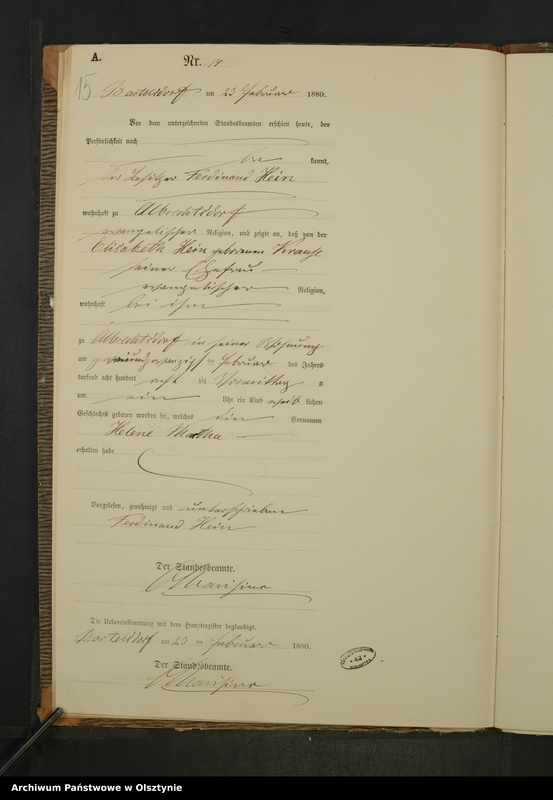 A.
Nr. 14
15
Bartelsdorf am 23 Februar 1880.
Vor dem unterzeichneten Standesbeamten erschien heute, der
Persönlichkeit nach
be kannt,
der Besitzer Ferdinand Hein
wohnhaft zu Albrechtsdorf
evangelischer Religion, und zeigte an, daß von der
Elisabeth Hein geborenen Krause
seiner Ehefrau
evangelischer Religion,
wohnhaft bei ihm
zu Albrechtsdorf in seiner Wohnung
am Februar des Jahres
tausend acht hundert acht zig Vormittag s
um Uhr ein Kind weib lichen
Geschlechts geboren worden sei, welches die Vornamen
Helene Martha
erhalten habe
Vorgelesen, genehmigt und unterschrieben
Ferdinand Hein
Der Standesbeamte.
Die Uebereinstimmung mit dem Hauptregister beglaubigt.
Bartelsdorf am 23 ten Februar 1880.
Der Standesbeamte.
* 42 *
Archiwum Państwowe w Olsztynie